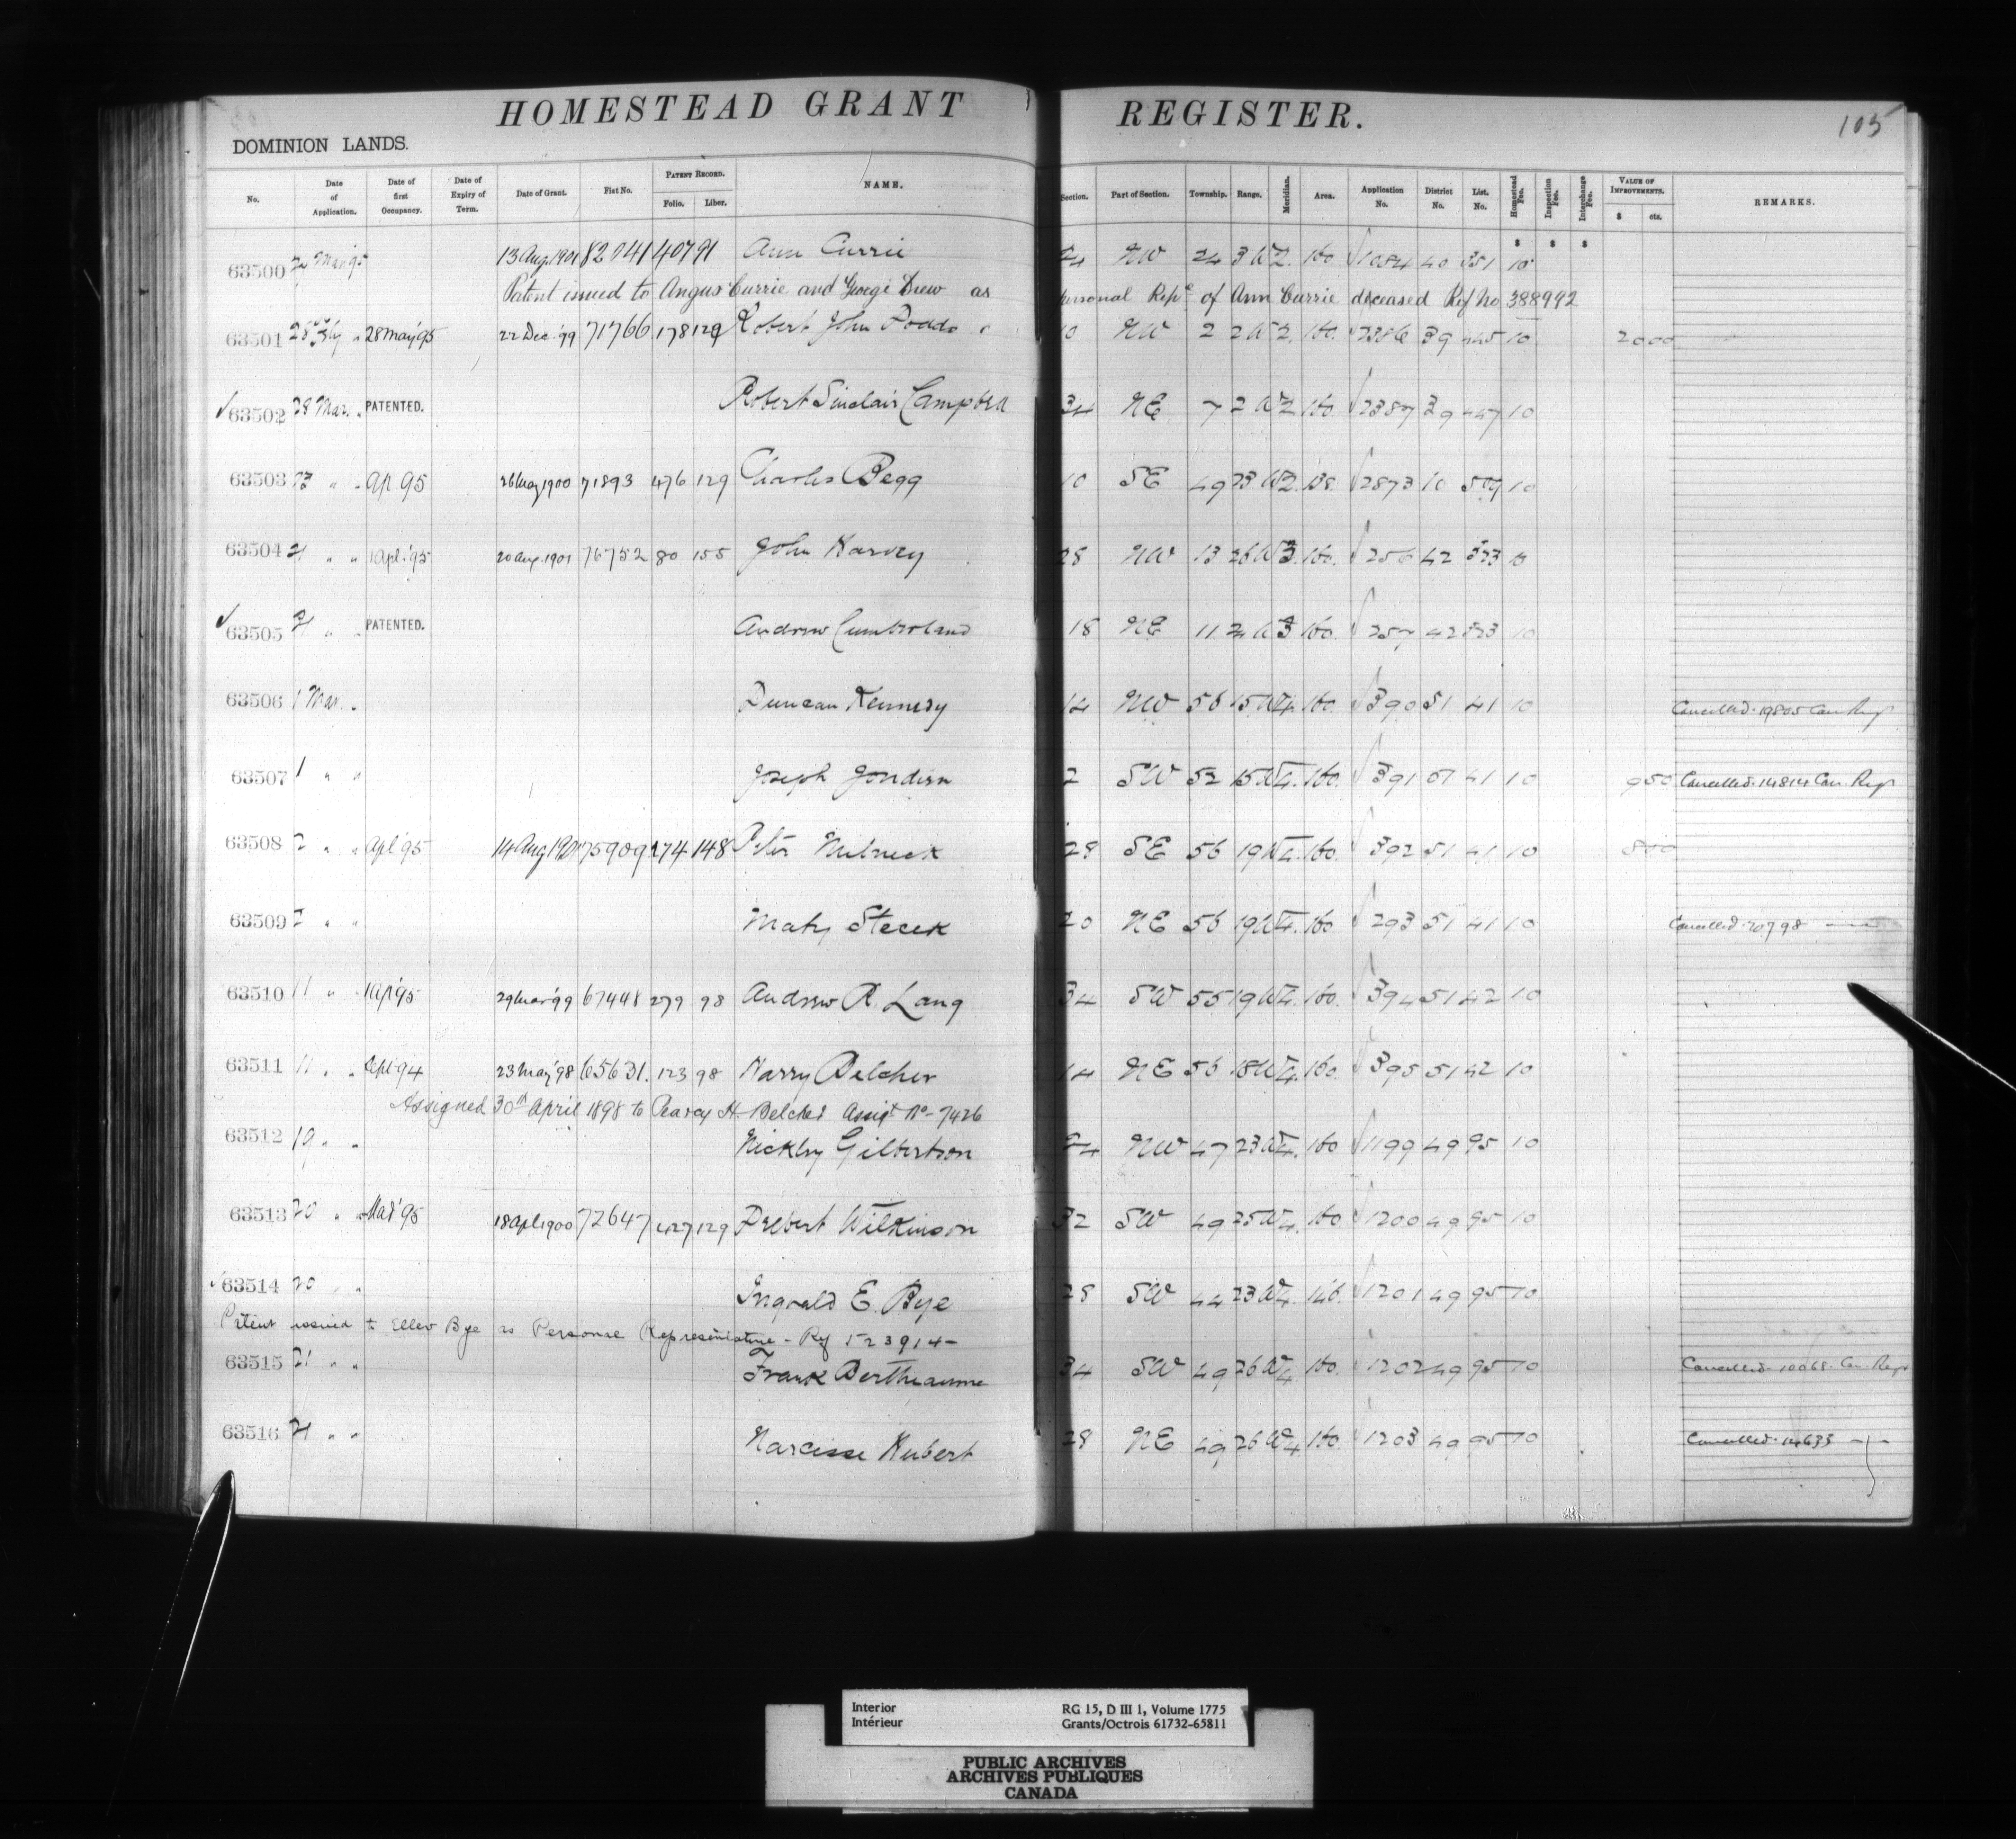 HOMESTEAD GRANT REGISTER.
105
DOMINION LANDS.
No. Date of Application. Date of first Occupancy. Date of Expiry of Term. Date of Grant. Fiat No. PATENT RECORD. Folio. Liber. NAME. Section. Part of Section. Township. Range. Meridian. Area. Application No. District No. List. No. Homestead Fee. Inspection Fee. Interchange Fee. VALUE OF IMPROVEMENTS. $ cts. REMARKS.
$ $ $
63500 Mar 95 13 Aug 1901 82041 407 91 Ann Currie 24 NW 24 3 W2. 160. 1084 40 351 10
Patent issued to Angus Currie and George Drew as personal Repe of Ann Currie deceased Ref No 388992
63501 28 " 28 May '95 22 Dec. '99 71766 178 129 Robert John 10 NW 2 2 W2. 160. 2386 39 445 10 2000
63502 28 Mar. " PATENTED. Robert Sinclair Campbell 34 NE 7 2 W2 160 2387 39 447 10
63503 23 " " Ap 95 26 May 1900 71893 476 129 Charles Begg 10 SE 49 23 W2. 138. 2873 10 509 10
63504 21 " " 1 Apl. '95 20 Aug. 1901 76752 80 155 John Harvey 28 NW 13 26 W3. 160. 256 42 323 10
63505 21 " " PATENTED. Andrew Cumberland 18 NE 11 24 W3 160. 257 42 323 10
63506 1 Mar. " Duncan Kennedy 14 NW 56 15 W4. 160. 390 51 41 10 Cancelled. 19805 Can Regr
63507 1 " " Joseph 2 SW 52 15 W4. 160. 391 51 41 10 950 Cancelled. 14814 Can. Regr
63508 2 " " Apl '95 14 Aug 1901 75909 274 148 Peter Melneck 28 SE 56 19 W4. 160. 392 51 41 10 500
63509 2 " " Maty Stecek 20 NE 56 19 W4. 160. 293 51 41 10 Cancelled. 20798 —
63510 11 " " 1 Ap '95 29 Mar '99 67448 279 98 Andrew R. Lang 34 SW 55 19 W4. 160. 394 51 42 10
63511 11 " " Sept 94 23 May '98 65631. 123 98 Harry Belcher 14 NE 56 18 W4. 160. 395 51 42 10
Assigned 30th April 1898 to Pearcy H. Belcher Assigt No - 7426
63512 19 " " Nickley Gilbertson 24 NW 47 23 W4. 160 1199 49 95 10
63513 20 " " Mar '95 18 Apl 1900 72647 427 129 Prebert Wilkinson 32 SW 49 25 W4. 160 1200 49 95 10
63514 20 " " Ingvald E. Bye 28 SW 44 23 W4. 146. 1201 49 95 10
Patent issued to Ellev Bye as Personal Representative - Ref 523914 -
63515 21 " " Frank Bertheaume 34 SW 49 26 W4 160. 1202 49 95 10 Cancelled. 10068. Can. Regr
63516 21 " " Narcisse Hubert 28 NE 49 26 W4 160. 1203 49 95 10 Cancelled. 14633 —
Interior RG 15, D III 1, Volume 1775
Intérieur Grants/Octrois 61732-65811
PUBLIC ARCHIVES
ARCHIVES PUBLIQUES
CANADA